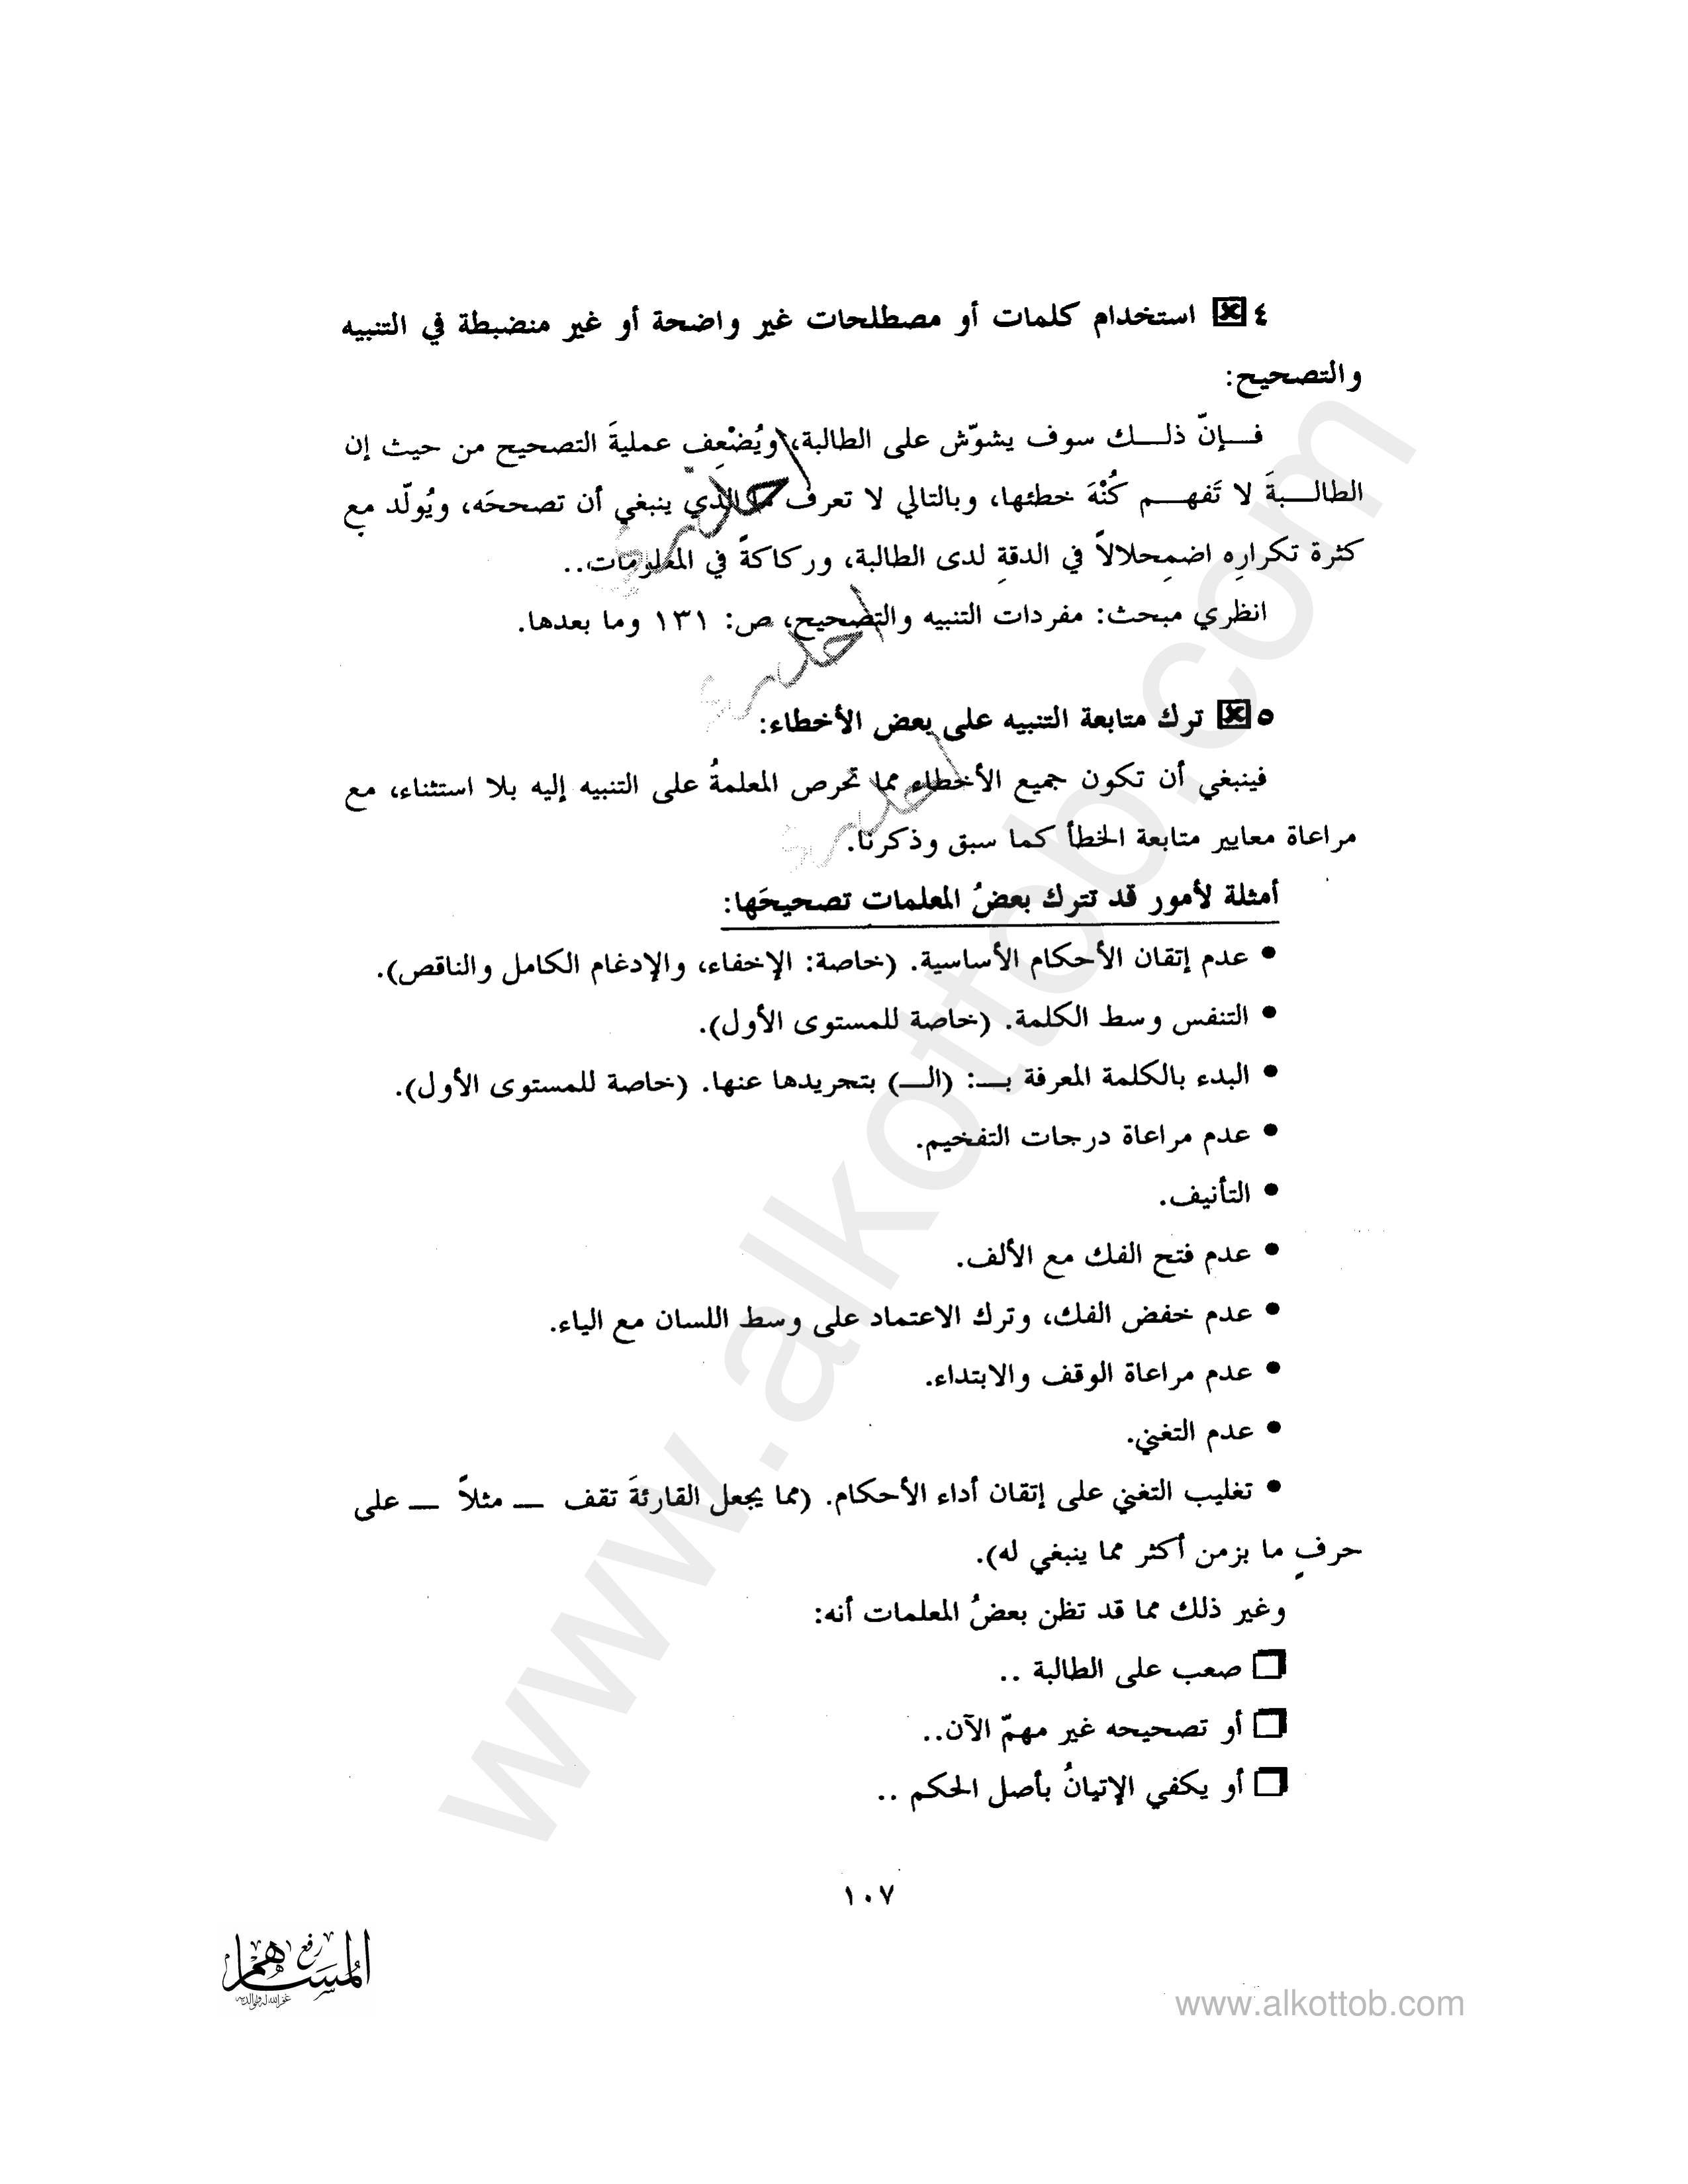 ٤ ☒ استخدام كلمات أو مصطلحات غير واضحة أو غير منضبطة في التنبيه
والتصحيح:
فـــإنّ ذلـــك سوف يشوّش على الطالبة، ويُضْعِف عمليةَ التصحيح من حيث إن
الطالـــبةَ لا تَفهـــم كُنْهَ خطئها، وبالتالي لا تعرف ما الذي ينبغي أن تصححَه، ويُولّد مع
كثرة تكرارِه اضمِحلالاً في الدقةِ لدى الطالبة، وركاكةً في المعلومات..
انظري مبحث: مفردات التنبيه والتصحيح، ص: ١٣١ وما بعدها.
٥ ☒ ترك متابعة التنبيه على بعض الأخطاء:
فينبغي أن تكون جميع الأخطاء مما تحرص المعلمةُ على التنبيه إليه بلا استثناء، مع
مراعاة معايير متابعة الخطأ كما سبق وذكرنا.
أمثلة لأمور قد تترك بعضُ المعلمات تصحيحَها:
• عدم إتقان الأحكام الأساسية. (خاصة: الإخفاء، والإدغام الكامل والناقص).
• التنفس وسط الكلمة. (خاصة للمستوى الأول).
• البدء بالكلمة المعرفة بـــ: (الـــ) بتجريدها عنها. (خاصة للمستوى الأول).
• عدم مراعاة درجات التفخيم.
• التأنيف.
• عدم فتح الفك مع الألف.
• عدم خفض الفك، وترك الاعتماد على وسط اللسان مع الياء.
• عدم مراعاة الوقف والابتداء.
• عدم التغني.
• تغليب التغني على إتقان أداء الأحكام. (مما يجعل القارئةَ تقف ــ مثلاً ــ على
حرفٍ ما بزمن أكثر مما ينبغي له).
وغير ذلك مما قد تظن بعضُ المعلمات أنه:
❏ صعب على الطالبة ..
❏ أو تصحيحه غير مهمّ الآن..
❏ أو يكفي الإتيانُ بأصل الحكم ..
١٠٧
رفع
المساهم
غفر الله له ولوالديه
www.alkottob.com
www.alkottob.com